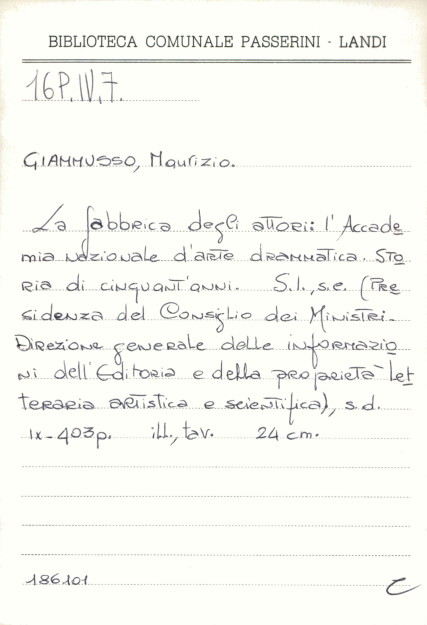 BIBLIOTECA COMUNALE PASSERINI - LANDI
16P.IV.7.
GIAMMUSSO, Maurizio.
La fabbrica degli attori: l'Accade
mia nazionale d'arte drammatica. STO
RIA di cinquant'anni. S.l., s.e. (PRE
sidenza del Consiglio dei Ministri.
Direzione generale delle informazio
ni dell'Editoria e della proprietà let
teraria artistica e scientifica), s.d.
IX-403p. ill., tav. 24 cm.
186101